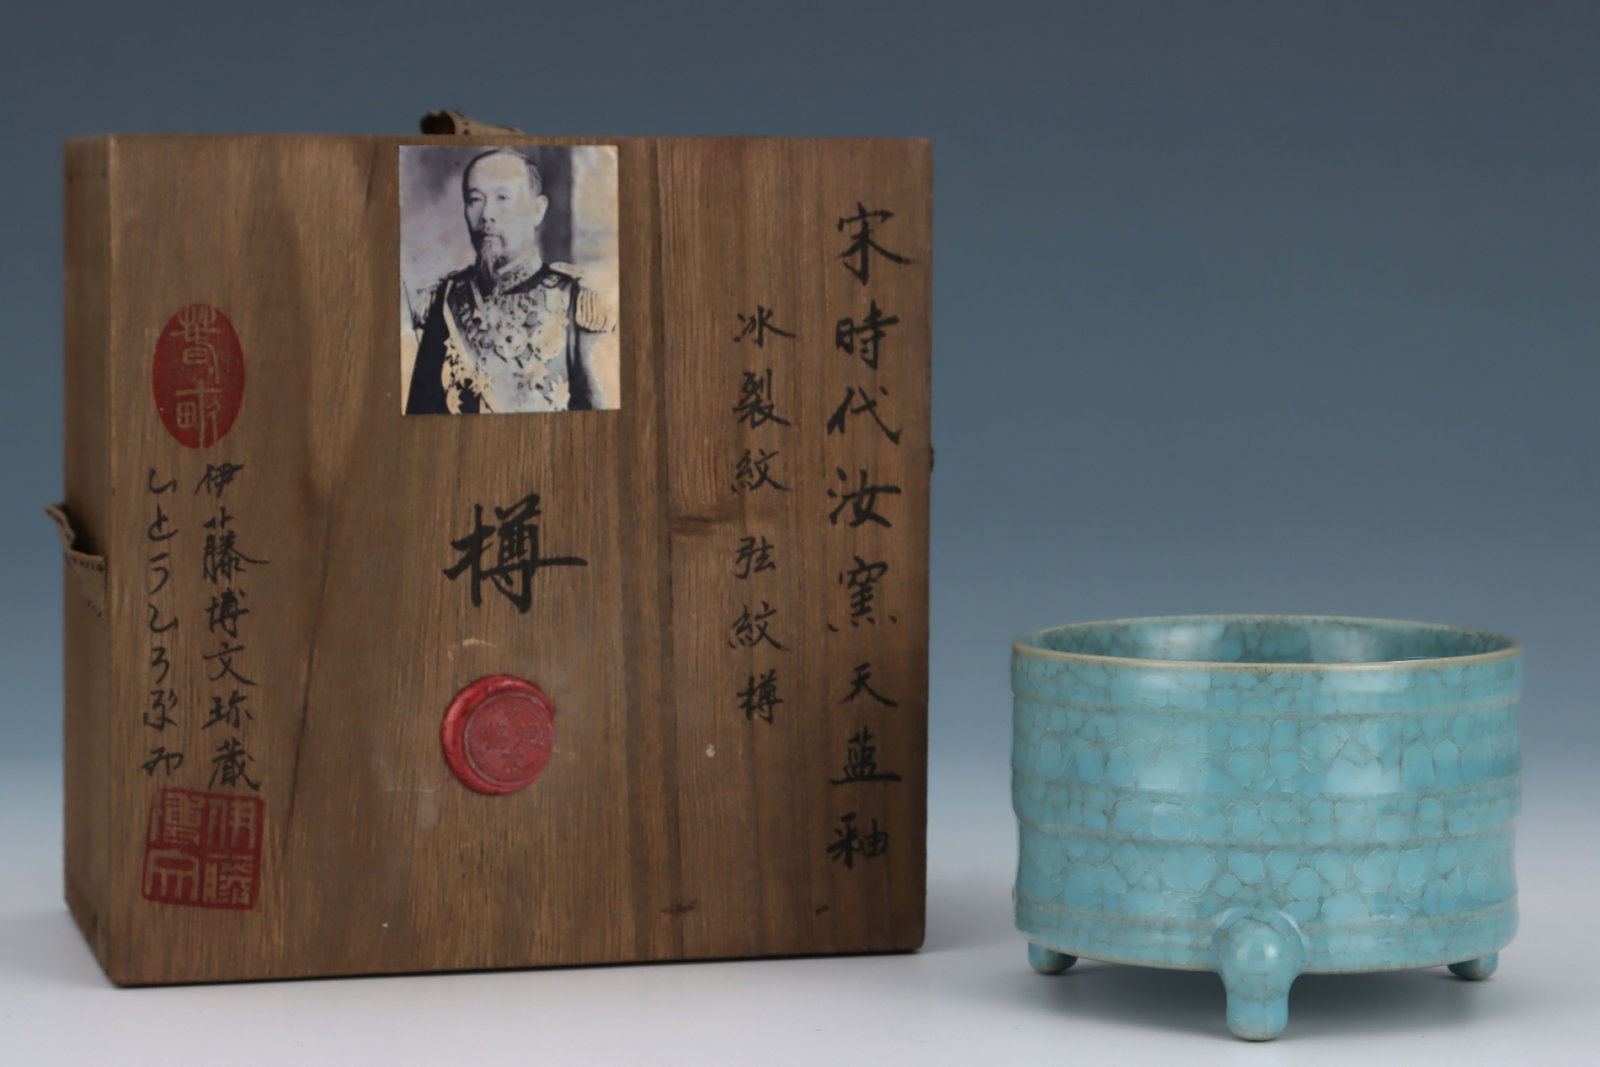 宋時代汝窯天藍釉
冰裂紋弦紋樽
樽
伊藤博文珎蔵
いとうひろぶみ
春畝
伊藤博文